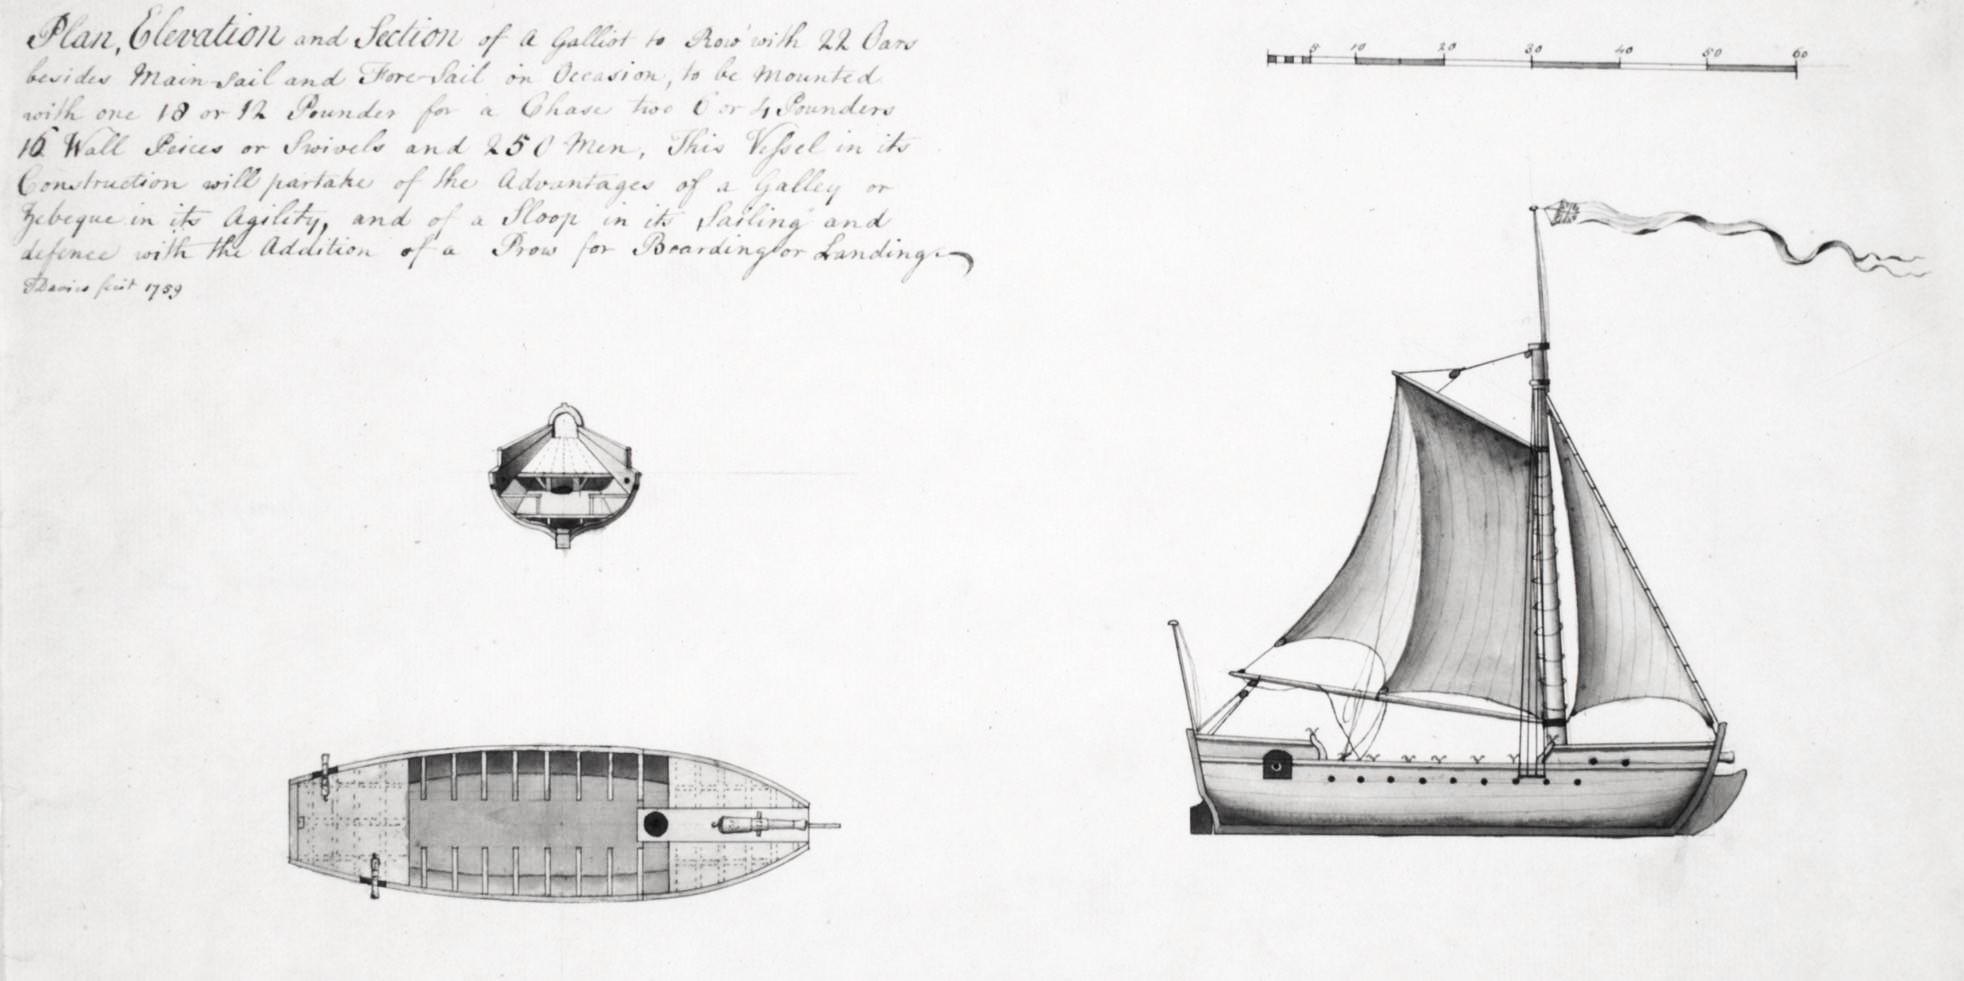 Plan, Elevation and Section of a Galliot to Row with 22 Oars
besides Main-Sail and Fore-Sail on Occasion, to be Mounted
with one 18 or 12 Pounder for a Chase two 6 or 4 Pounders
16 Wall Peices or Swivels and 250 Men, This Veſsel in its
Construction will partake of the Advantages of a Galley or
Zebeque in its Agility, and of a Sloop in its Sailing and
defence with the Addition of a Prow for Boarding or Landing
TDavies fecit 1759
5 10 20 30 40 50 60